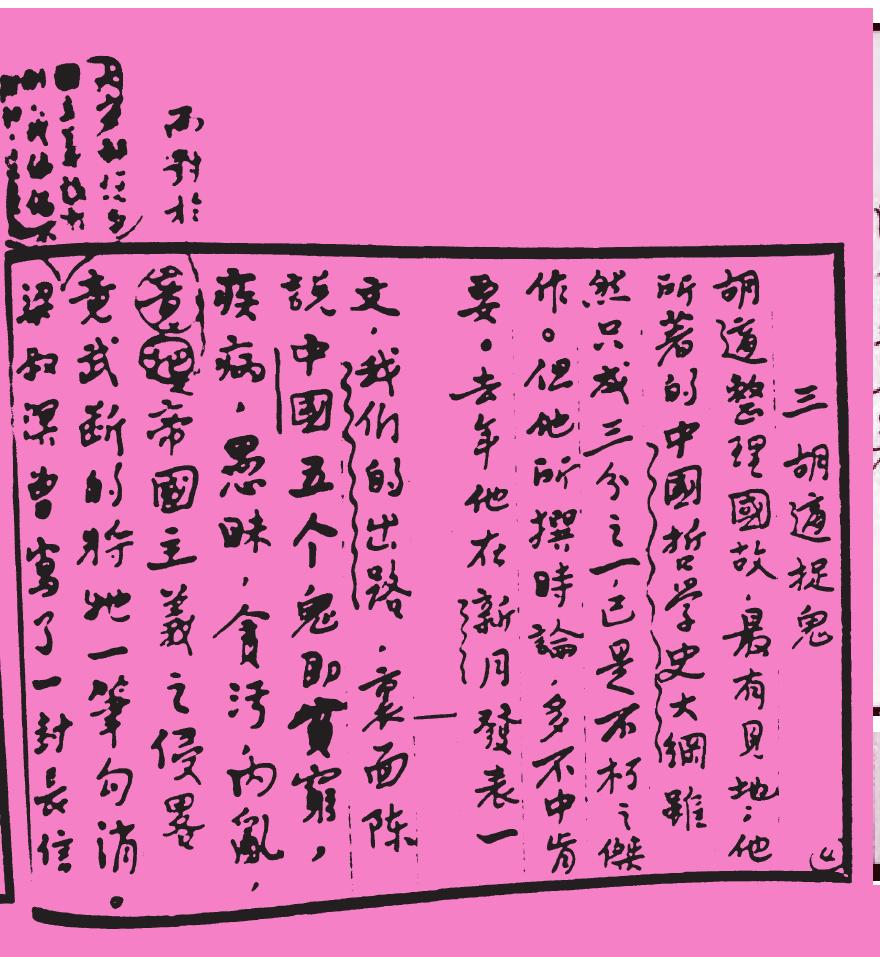 三 胡適捉鬼
胡適整理國故，最有見地；他
所著的中國哲学史大綱雖
然只成三分之一，已是不朽之傑
作。但他所撰時論，多不中肯
要。去年他在新月發表一
文，我们的出路，裏面陈
說中國五个鬼即貧窮，
疾病，愚昧，貪污，內亂，
而對於
帝國主義之侵畧
竟武断的将她一筆勾消。
梁叔溟曾寫了一封長信